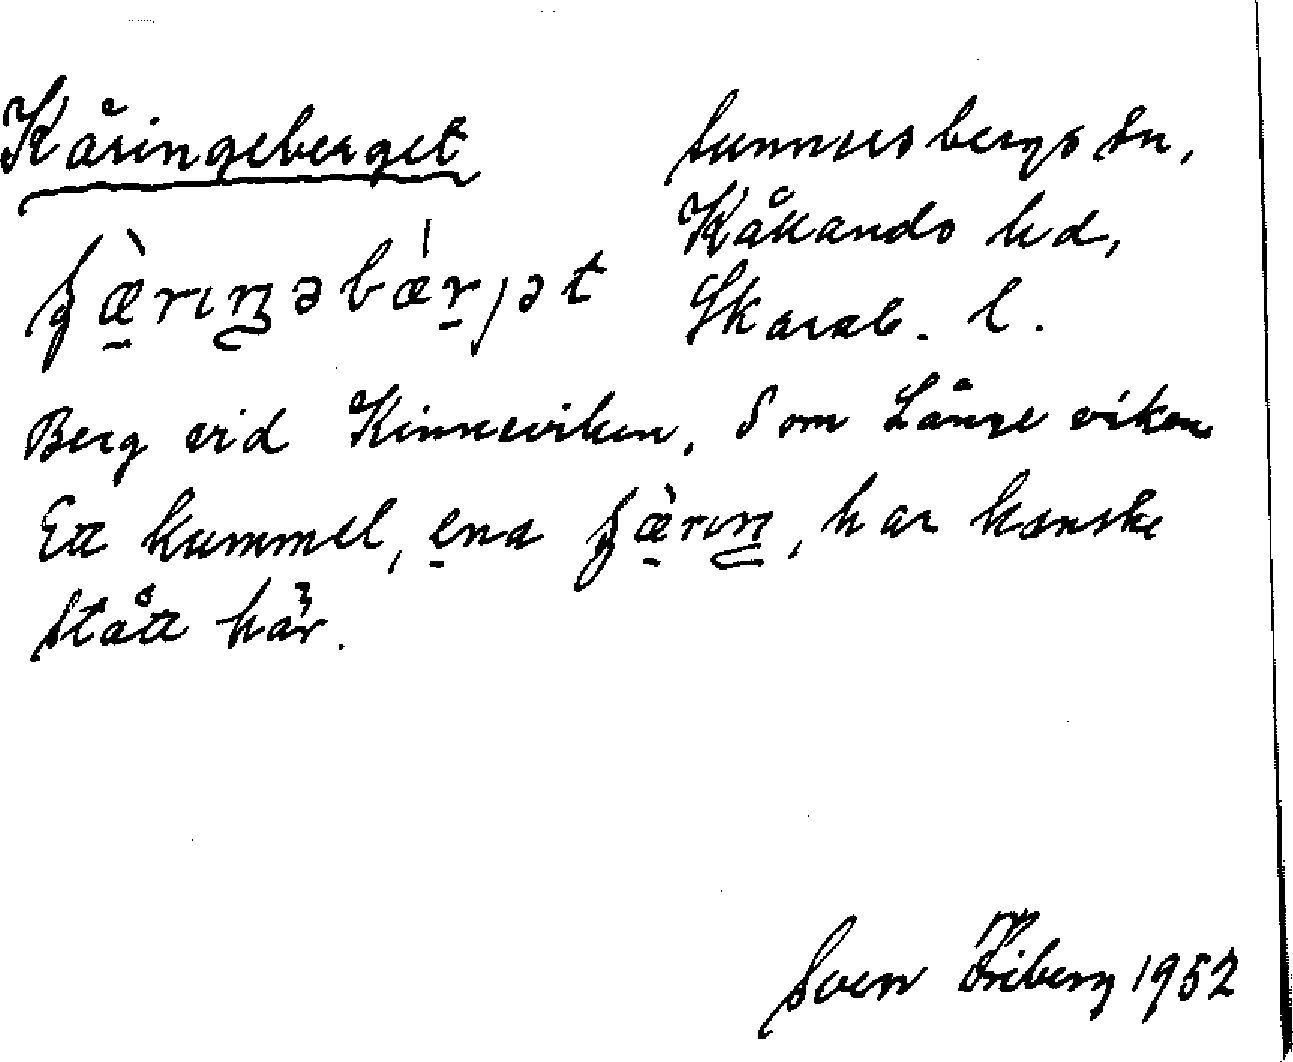 Käringeberget
Sunnersbergs sn,
Kållands hd,
Skarab. l.
Berg vid Kinneviken. Som Långe viken
Ett kummel, ena har kanske
stått här.
Sven Friberg 1952